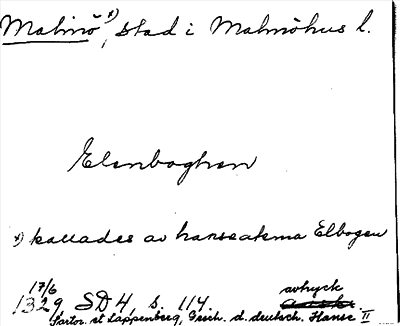 Malmö x), stad i Malmöhus l.
Elenboghen
x) kallades av hanseaterna Elbogen
17/6
1329 SD 4, s. 114. avtryck
Sartor. et Lappenberg, Gesch. d. deutsch. Hanse II